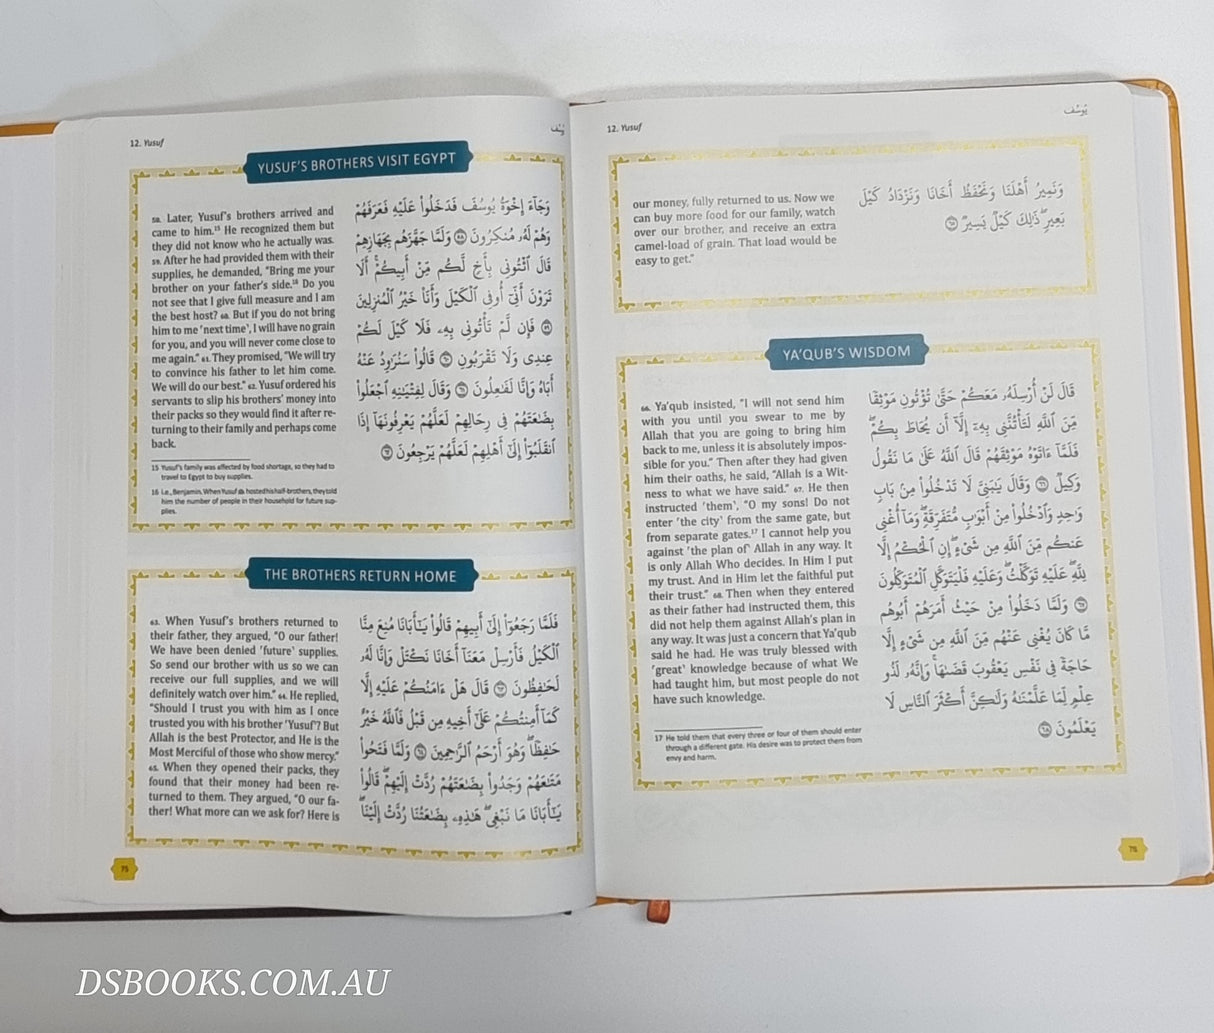 12. Yusuf
يُوسُف
YUSUF'S BROTHERS VISIT EGYPT
58. Later, Yusuf's brothers arrived and
came to him.¹⁵ He recognized them but
they did not know who he actually was.
59. After he had provided them with their
supplies, he demanded, "Bring me your
brother on your father's side.¹⁶ Do you
not see that I give full measure and I am
the best host? 60. But if you do not bring
him to me 'next time', I will have no grain
for you, and you will never come close to
me again." 61. They promised, "We will try
to convince his father to let him come.
We will do our best." 62. Yusuf ordered his
servants to slip his brothers' money into
their packs so they would find it after re-
turning to their family and perhaps come
back.
15 Yusuf's family was affected by food shortage, so they had to
travel to Egypt to buy supplies.
16 i.e., Benjamin. When Yusuf hosted his half-brothers, they told
him the number of people in their household for future sup-
plies.
وَجَآءَ إِخْوَةُ يُوسُفَ فَدَخَلُوا۟ عَلَيْهِ فَعَرَفَهُمْ
وَهُمْ لَهُۥ مُنكِرُونَ ٥٨ وَلَمَّا جَهَّزَهُم بِجَهَازِهِمْ
قَالَ ٱئْتُونِى بِأَخٍ لَّكُم مِّنْ أَبِيكُمْ ۚ أَلَا
تَرَوْنَ أَنِّىٓ أُوفِى ٱلْكَيْلَ وَأَنَا۠ خَيْرُ ٱلْمُنزِلِينَ
٥٩ فَإِن لَّمْ تَأْتُونِى بِهِۦ فَلَا كَيْلَ لَكُمْ
عِندِى وَلَا تَقْرَبُونِ ٦٠ قَالُوا۟ سَنُرَٰوِدُ عَنْهُ
أَبَاهُ وَإِنَّا لَفَـٰعِلُونَ ٦١ وَقَالَ لِفِتْيَـٰنِهِ ٱجْعَلُوا۟
بِضَـٰعَتَهُمْ فِى رِحَالِهِمْ لَعَلَّهُمْ يَعْرِفُونَهَآ إِذَا
ٱنقَلَبُوٓا۟ إِلَىٰٓ أَهْلِهِمْ لَعَلَّهُمْ يَرْجِعُونَ ٦٢
THE BROTHERS RETURN HOME
63. When Yusuf's brothers returned to
their father, they argued, "O our father!
We have been denied 'future' supplies.
So send our brother with us so we can
receive our full supplies, and we will
definitely watch over him." 64. He replied,
"Should I trust you with him as I once
trusted you with his brother 'Yusuf'? But
Allah is the best Protector, and He is the
Most Merciful of those who show mercy."
65. When they opened their packs, they
found that their money had been re-
turned to them. They argued, "O our fa-
ther! What more can we ask for? Here is
فَلَمَّا رَجَعُوٓا۟ إِلَىٰٓ أَبِيهِمْ قَالُوا۟ يَـٰٓأَبَانَا مُنِعَ مِنَّا
ٱلْكَيْلُ فَأَرْسِلْ مَعَنَآ أَخَانَا نَكْتَلْ وَإِنَّا لَهُۥ
لَحَـٰفِظُونَ ٦٣ قَالَ هَلْ ءَامَنُكُمْ عَلَيْهِ إِلَّا
كَمَآ أَمِنتُكُمْ عَلَىٰٓ أَخِيهِ مِن قَبْلُ ۖ فَٱللَّهُ خَيْرٌ
حَـٰفِظًا ۖ وَهُوَ أَرْحَمُ ٱلرَّٰحِمِينَ ٦٤ وَلَمَّا فَتَحُوا۟
مَتَـٰعَهُمْ وَجَدُوا۟ بِضَـٰعَتَهُمْ رُدَّتْ إِلَيْهِمْ ۖ قَالُوا۟
يَـٰٓأَبَانَا مَا نَبْغِى ۖ هَـٰذِهِۦ بِضَـٰعَتُنَا رُدَّتْ إِلَيْنَا ۖ
75
12. Yusuf
يُوسُف
our money, fully returned to us. Now we
can buy more food for our family, watch
over our brother, and receive an extra
camel-load of grain. That load would be
easy to get."
وَنَمِيرُ أَهْلَنَا وَنَحْفَظُ أَخَانَا وَنَزْدَادُ كَيْلَ
بَعِيرٍ ۖ ذَٰلِكَ كَيْلٌ يَسِيرٌ ٦٥
YA'QUB'S WISDOM
66. Ya'qub insisted, "I will not send him
with you until you swear to me by
Allah that you are going to bring him
back to me, unless it is absolutely impos-
sible for you." Then after they had given
him their oaths, he said, "Allah is a Wit-
ness to what we have said." 67. He then
instructed 'them', "O my sons! Do not
enter 'the city' from the same gate, but
from separate gates.¹⁷ I cannot help you
against 'the plan of' Allah in any way. It
is only Allah Who decides. In Him I put
my trust. And in Him let the faithful put
their trust." 68. Then when they entered
as their father had instructed them, this
did not help them against Allah's plan in
any way. It was just a concern that Ya'qub
said he had. He was truly blessed with
'great' knowledge because of what We
had taught him, but most people do not
have such knowledge.
17 He told them that every three or four of them should enter
through a different gate. His desire was to protect them from
envy and harm.
قَالَ لَنْ أُرْسِلَهُۥ مَعَكُمْ حَتَّىٰ تُؤْتُونِ مَوْثِقًا
مِّنَ ٱللَّهِ لَتَأْتُنَّنِى بِهِۦٓ إِلَّآ أَن يُحَاطَ بِكُمْ ۖ
فَلَمَّآ ءَاتَوْهُ مَوْثِقَهُمْ قَالَ ٱللَّهُ عَلَىٰ مَا نَقُولُ
وَكِيلٌ ٦٦ وَقَالَ يَـٰبَنِىَّ لَا تَدْخُلُوا۟ مِنۢ بَابٍ
وَٰحِدٍ وَٱدْخُلُوا۟ مِنْ أَبْوَٰبٍ مُّتَفَرِّقَةٍ ۖ وَمَآ أُغْنِى
عَنكُم مِّنَ ٱللَّهِ مِن شَىْءٍ ۖ إِنِ ٱلْحُكْمُ إِلَّا
لِلَّهِ ۖ عَلَيْهِ تَوَكَّلْتُ ۖ وَعَلَيْهِ فَلْيَتَوَكَّلِ ٱلْمُتَوَكِّلُونَ
٦٧ وَلَمَّا دَخَلُوا۟ مِنْ حَيْثُ أَمَرَهُمْ أَبُوهُم
مَّا كَانَ يُغْنِى عَنْهُم مِّنَ ٱللَّهِ مِن شَىْءٍ إِلَّا
حَاجَةً فِى نَفْسِ يَعْقُوبَ قَضَىٰهَا ۚ وَإِنَّهُۥ لَذُو
عِلْمٍ لِّمَا عَلَّمْنَـٰهُ وَلَـٰكِنَّ أَكْثَرَ ٱلنَّاسِ لَا
يَعْلَمُونَ ٦٨
DSBOOKS.COM.AU